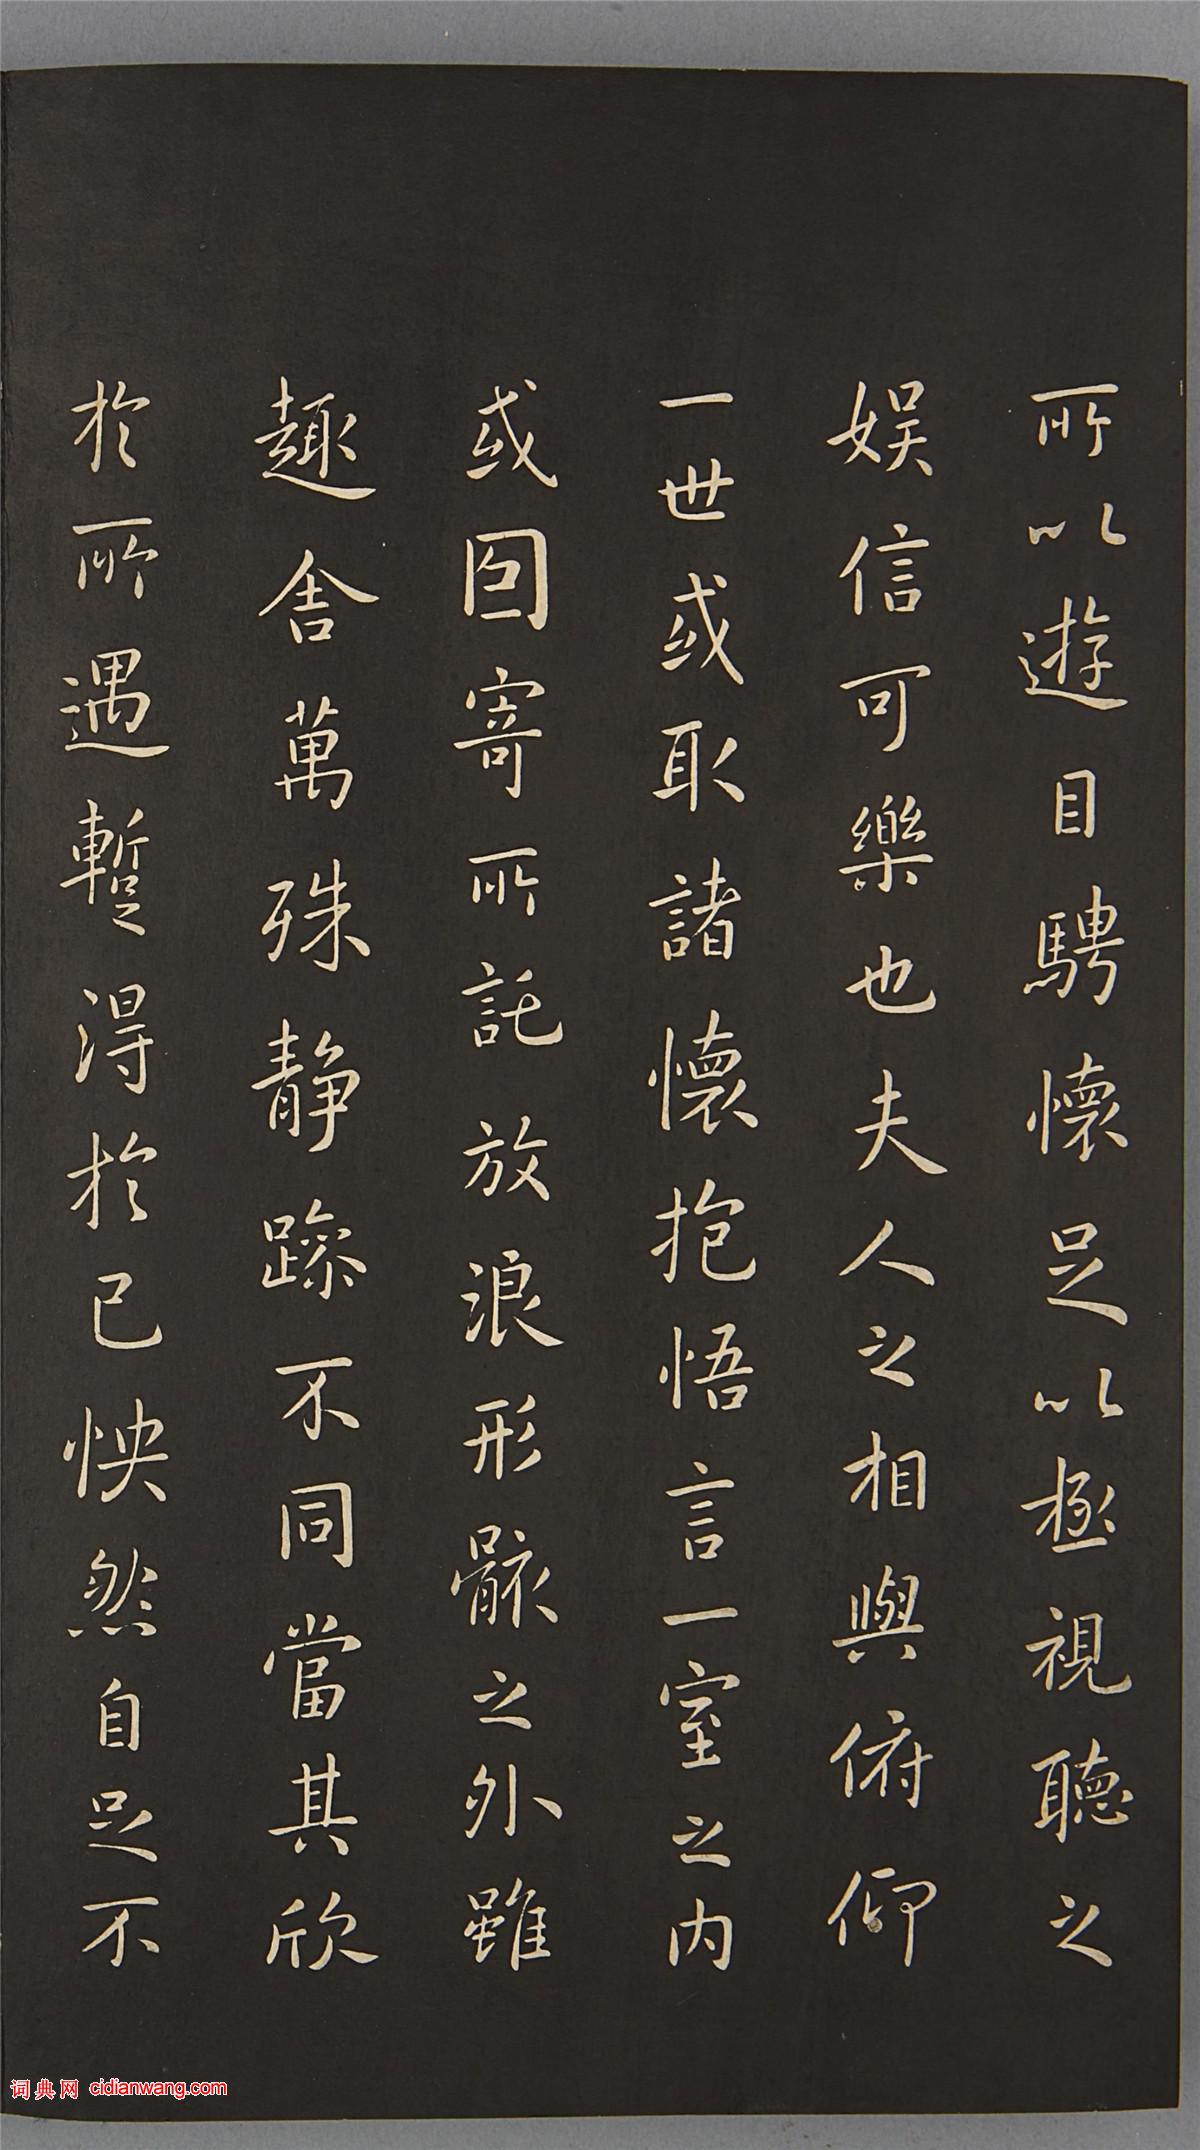 所以遊目騁懷足以極視聽之
娛信可樂也夫人之相與俯仰
一世或取諸懷抱悟言一室之内
或因寄所託放浪形骸之外雖
趣舍萬殊静躁不同當其欣
於所遇蹔得於己怏然自足不
词典网 cidianwang.com